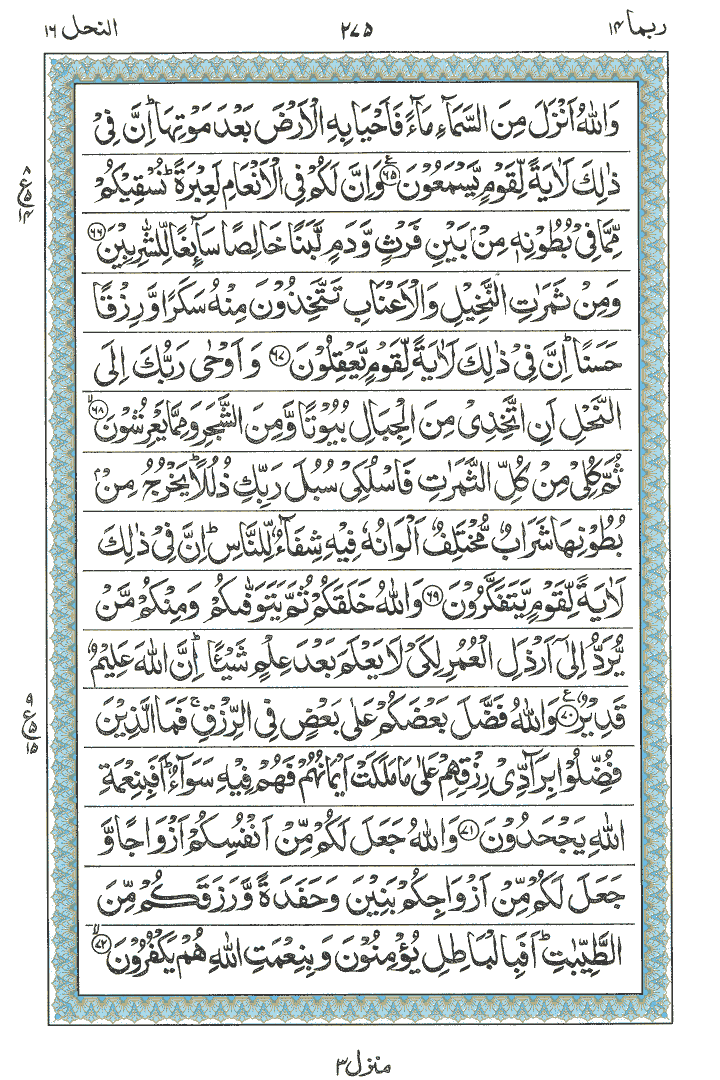 ربما ۱۴ ۲۷۵ النحل ۱۶
وَاللّٰهُ اَنْزَلَ مِنَ السَّمَآءِ مَآءً فَاَحْيَا بِهِ الْاَرْضَ بَعْدَ مَوْتِهَا ؕ اِنَّ فِيْ
ذٰلِكَ لَاٰيَةً لِّقَوْمٍ يَّسْمَعُوْنَ ۶۵ ع وَاِنَّ لَكُمْ فِي الْاَنْعَامِ لَعِبْرَةً ؕ نُسْقِيْكُمْ
۸ ع ۵ ۱۴
مِّمَّا فِيْ بُطُوْنِهٖ مِنْۢ بَيْنِ فَرْثٍ وَّدَمٍ لَّبَنًا خَالِصًا سَآئِغًا لِّلشّٰرِبِيْنَ ۶۶
وَمِنْ ثَمَرٰتِ النَّخِيْلِ وَالْاَعْنَابِ تَتَّخِذُوْنَ مِنْهُ سَكَرًا وَّرِزْقًا
حَسَنًا ؕ اِنَّ فِيْ ذٰلِكَ لَاٰيَةً لِّقَوْمٍ يَّعْقِلُوْنَ ۶۷ وَاَوْحٰى رَبُّكَ اِلَى
النَّحْلِ اَنِ اتَّخِذِيْ مِنَ الْجِبَالِ بُيُوْتًا وَّمِنَ الشَّجَرِ وَمِمَّا يَعْرِشُوْنَ ۶۸ ۙ
ثُمَّ كُلِيْ مِنْ كُلِّ الثَّمَرٰتِ فَاسْلُكِيْ سُبُلَ رَبِّكِ ذُلُلًا ؕ يَخْرُجُ مِنْۢ
بُطُوْنِهَا شَرَابٌ مُّخْتَلِفٌ اَلْوَانُهٗ فِيْهِ شِفَآءٌ لِّلنَّاسِ ؕ اِنَّ فِيْ ذٰلِكَ
لَاٰيَةً لِّقَوْمٍ يَّتَفَكَّرُوْنَ ۶۹ وَاللّٰهُ خَلَقَكُمْ ثُمَّ يَتَوَفّٰىكُمْ وَمِنْكُمْ مَّنْ
يُّرَدُّ اِلٰٓى اَرْذَلِ الْعُمُرِ لِكَيْ لَا يَعْلَمَ بَعْدَ عِلْمٍ شَيْـًٔا ؕ اِنَّ اللّٰهَ عَلِيْمٌ
قَدِيْرٌ ۷۰ ع وَاللّٰهُ فَضَّلَ بَعْضَكُمْ عَلٰى بَعْضٍ فِي الرِّزْقِ ۚ فَمَا الَّذِيْنَ
۹ ع ۵ ۱۵
فُضِّلُوْا بِرَآدِّيْ رِزْقِهِمْ عَلٰى مَا مَلَكَتْ اَيْمَانُهُمْ فَهُمْ فِيْهِ سَوَآءٌ ؕ اَفَبِنِعْمَةِ
اللّٰهِ يَجْحَدُوْنَ ۷۱ وَاللّٰهُ جَعَلَ لَكُمْ مِّنْ اَنْفُسِكُمْ اَزْوَاجًا وَّ
جَعَلَ لَكُمْ مِّنْ اَزْوَاجِكُمْ بَنِيْنَ وَحَفَدَةً وَّرَزَقَكُمْ مِّنَ
الطَّيِّبٰتِ ؕ اَفَبِالْبَاطِلِ يُؤْمِنُوْنَ وَبِنِعْمَتِ اللّٰهِ هُمْ يَكْفُرُوْنَ ۷۲ ۙ
منزل ۳